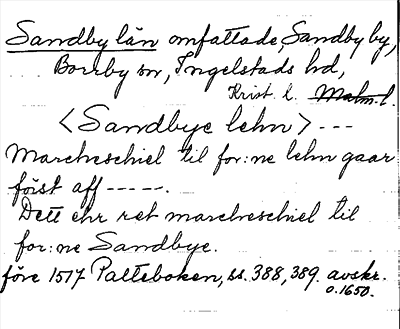 Sandby län omfattade Sandby by,
Borrby sn, Ingelstads hd,
Krist. l. Malm. l.
<Sandbye lehn> ---
Marcheschiel til for:ne lehn gaar
först aff -----.
Dett ehr ret marcheschiel til
for:ne Sandbye.
före 1517 Palteboken, ss. 388, 389. avskr.
o. 1650.